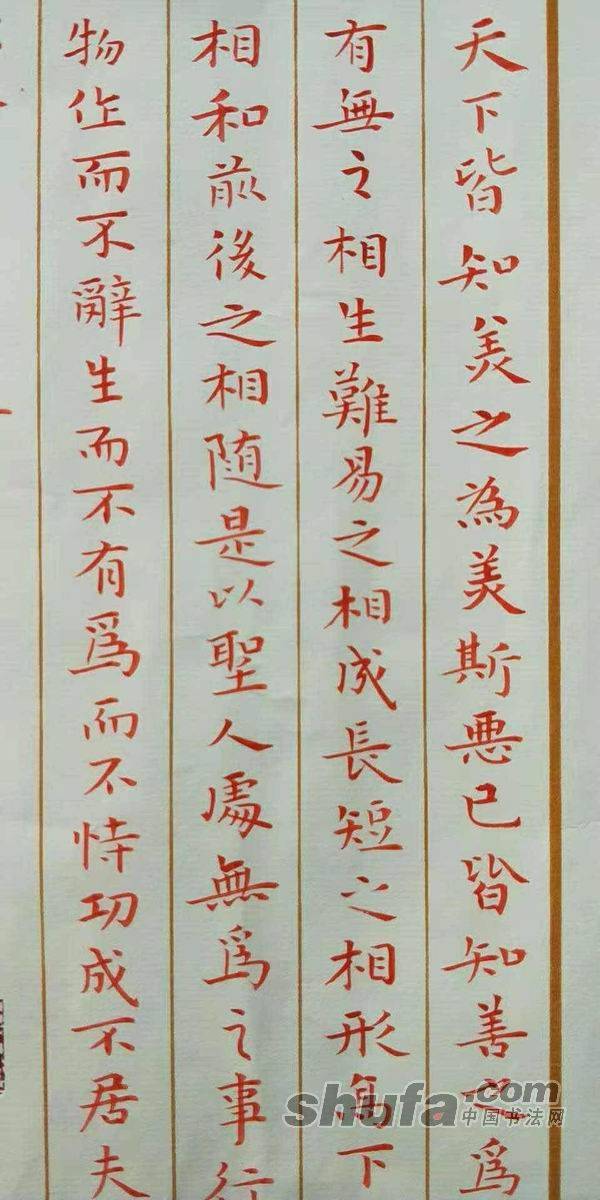 天下皆知美之為美斯悪已皆知善之爲
有無之相生難易之相成長短之相形高下
相和前後之相随是以聖人處無爲之事行
物作而不辭生而不有爲而不恃功成不居夫
shufa.com
中国书法网